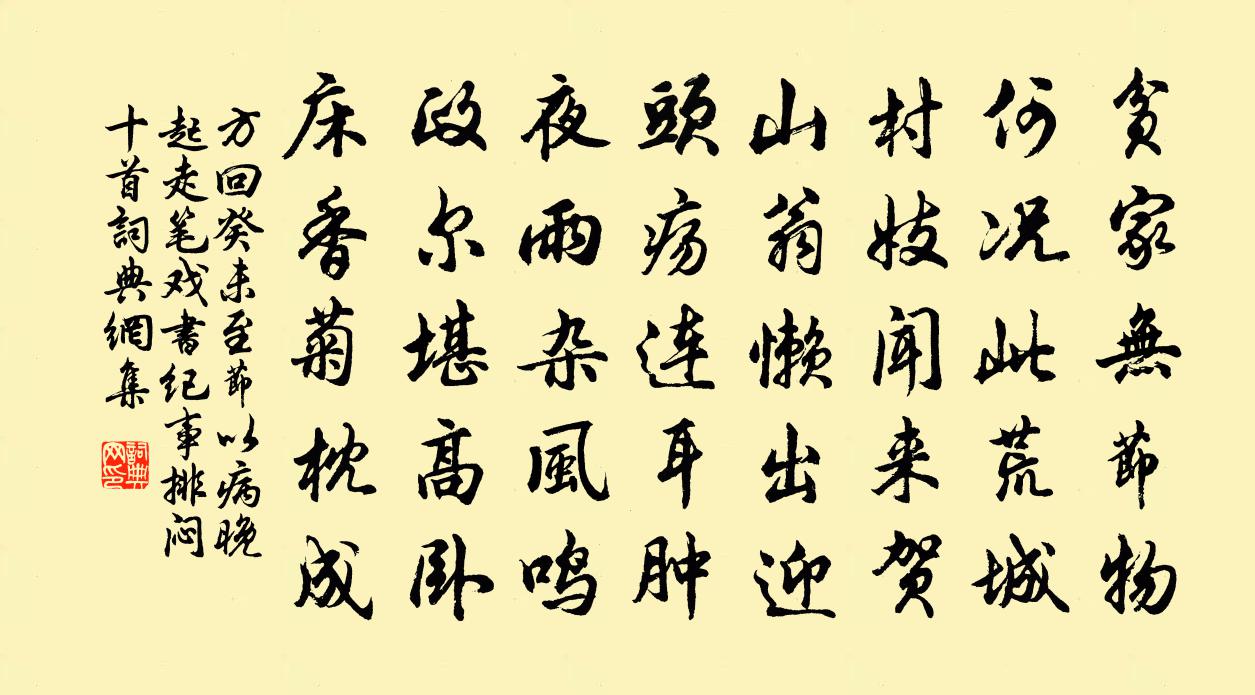 貧家無節物
何况此荒城
村妓闻来贺
山翁懒出迎
頭疡連耳肿
夜雨杂風鸣
政尔堪高卧
床香菊枕成
方回癸未至節以病晚
起走笔戏書纪事排闷
十首詞典網集
詞典网印